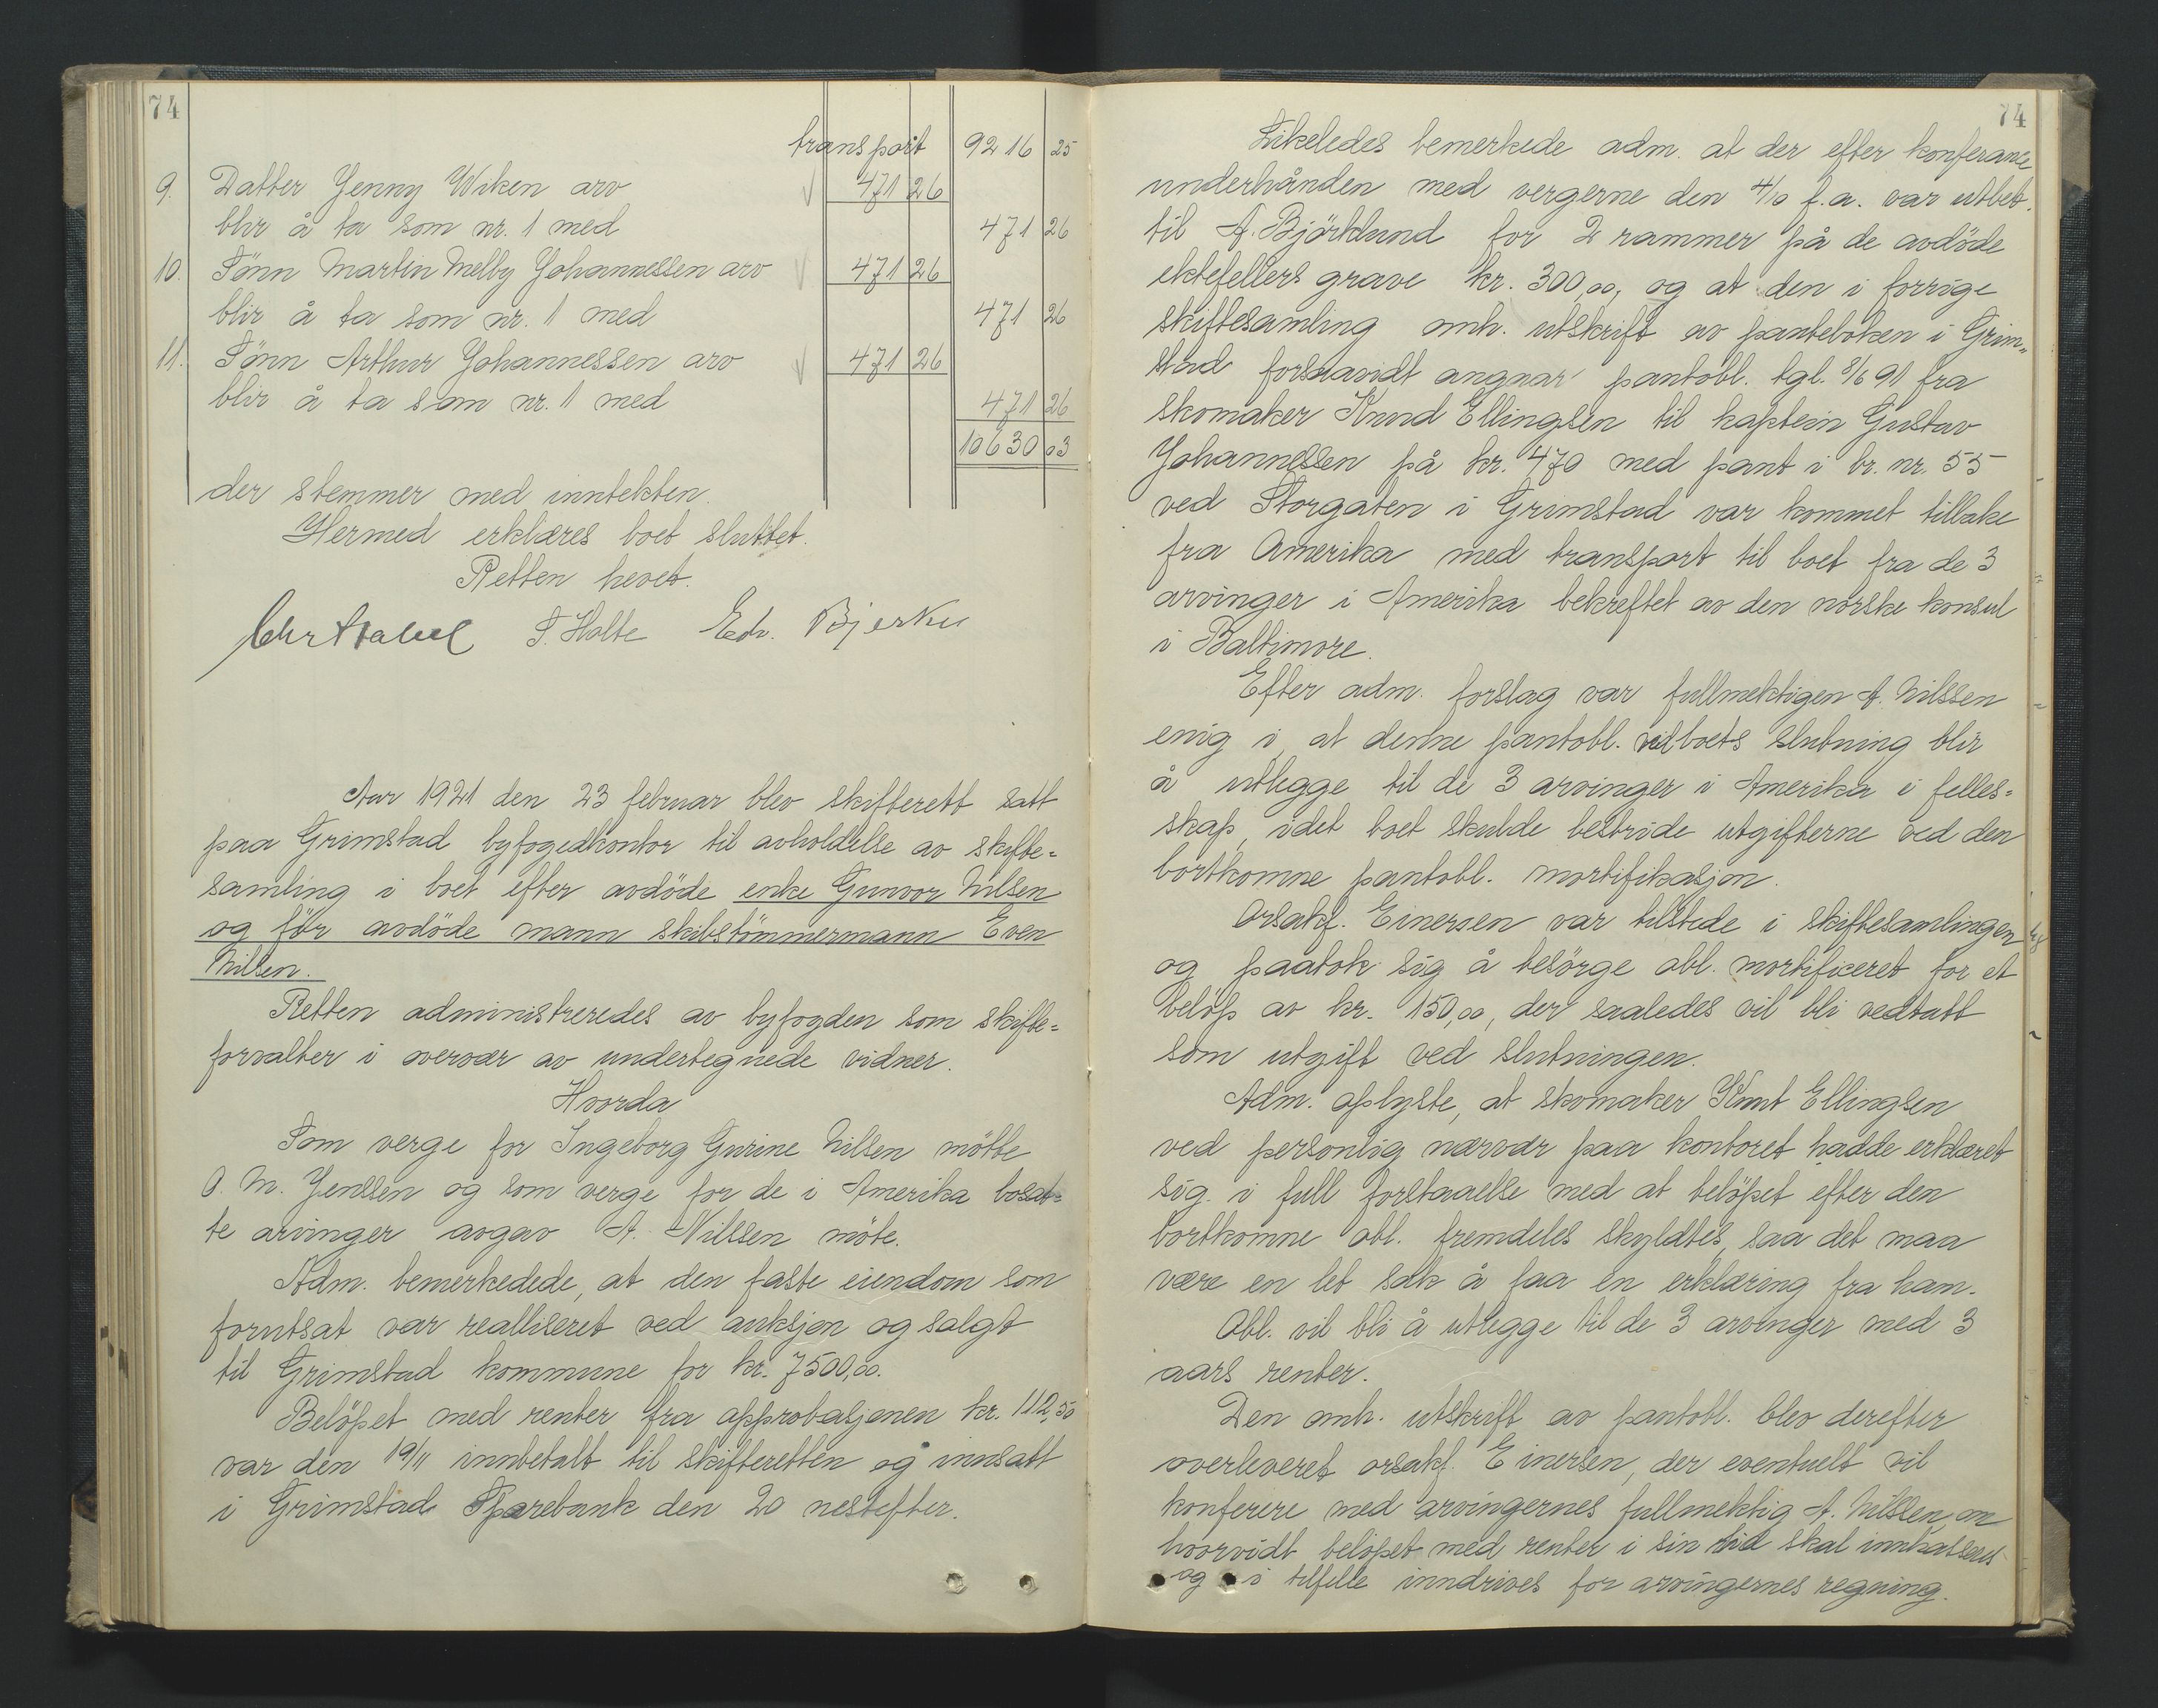 74
transport 9216 25
9. Datter Jenny Wiken arv 471 26
blir å ta som nr. 1 med 471 26
10. Sønn Martin Melby Johannessen arv 471 26
blir å ta som nr. 1 med 471 26
11. Sønn Arthur Johannessen arv 471 26
blir å ta som nr. 1 med 471 26
10630 03
der stemmer med inntekten.
Hermed erklæres boet sluttet.
Retten hevet.
S. Holte Edv. Bjerke
Aar 1921 den 23 februar blev skifterett satt
paa Grimstad byfogedkontor til avholdelse av skifte=
samling i boet efter avdöde enke Gunvor Nilsen
og för avdöde mann skibstömmermann Even
Nilsen.
Retten administreredes av byfogden som skifte=
forvalter i overvær av undertegnede vidner.
Hvorda
Som verge for Ingeborg Gurine Nilsen mötte
O. M. Jenssen og som verge for de i Amerika bosat=
te arvinger avgav A. Nilssen möte.
Adm. bemerkedede, at den faste eiendom som
forutsat var realliseret ved auksjon og solgt
til Grimstad kommune for kr. 7500,00.
Belöpet med renter fra approbasjonen kr. 112,50
var den 19/11 innbetalt til skifteretten og innsatt
i Grimstad Sparebank den 20 nestefter.
74
Likeledes bemerkede adm. at der efter konferanse
underhånden med vergerne den 4/10 f.a. var utbet.
til A. Björklund for 2 rammer på de avdöde
ektefellers grave kr. 300,00, og at den i forrige
skiftesamling omh. utskrift av panteboken i Grim=
stad forsaavidt angaar pantobl. tgl. 8/6 91 fra
skomaker Knud Ellingsen til kaptein Gustav
Johannessen på kr. 470 med pant i br. nr. 55
ved Storgaten i Grimstad var kommet tilbake
fra Amerika med transport til boet fra de 3
arvinger i Amerika bekreftet av den norske konsul
i Baltimore.
Efter adm. forslag var fullmektigen A. Nilssen
enig i, at denne pantobl. ved boets slutning blir
å utlegge til de 3 arvinger i Amerika i felles=
skap, idet boet skulde bestride utgifterne ved den
bortkomne pantobl. mortifikasjon.
Orsakf. Einersen var tilstede i skiftesamlingen
og paatok sig å besörge obl. mortificeret for et
belöp av kr. 150,00, der saaledes vil bli vedtatt
som utgift ved slutningen.
Adm. oplyste, at skomaker Knut Ellingsen
ved personlig nærvær paa kontoret hadde erklæret
sig i full forstaaelse med at belöpet efter den
bortkomne obl. fremdeles skyldtes, saa det maa
være en let sak å faa en erklæring fra ham.
Obl. vil bli å utlegge til de 3 arvinger med 3
aars renter.
Den omh. utskrift av pantobl. blev derefter
overleveret orsakf. Einersen, der eventuelt vil
konferere med arvingernes fullmektig A. Nilssen, om
hvorvidt belöpet med renter i sin tid skal innkasseres
og i tilfelle inndrives for arvingernes regning.